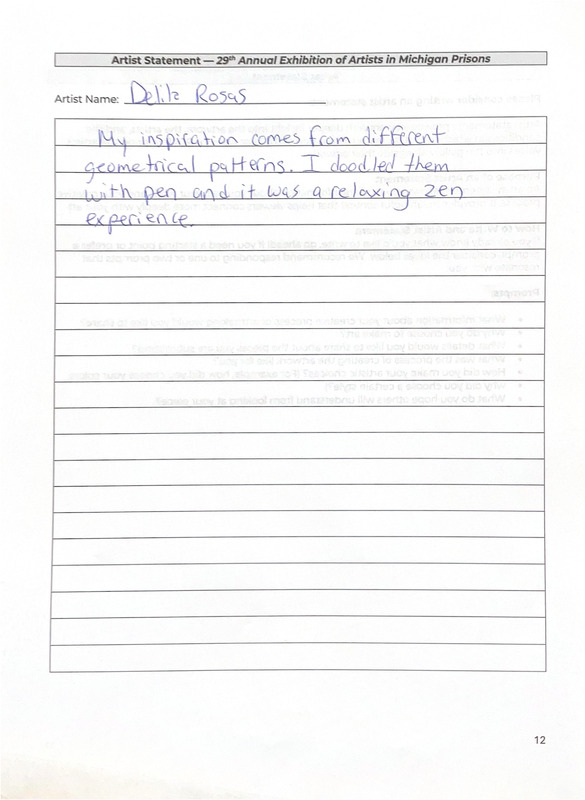 Artist Statement — 29th Annual Exhibition of Artists in Michigan Prisons
Artist Name: Delila Rosas
My inspiration comes from different
geometrical patterns. I doodled them
with pen and it was a relaxing zen
experience.
12